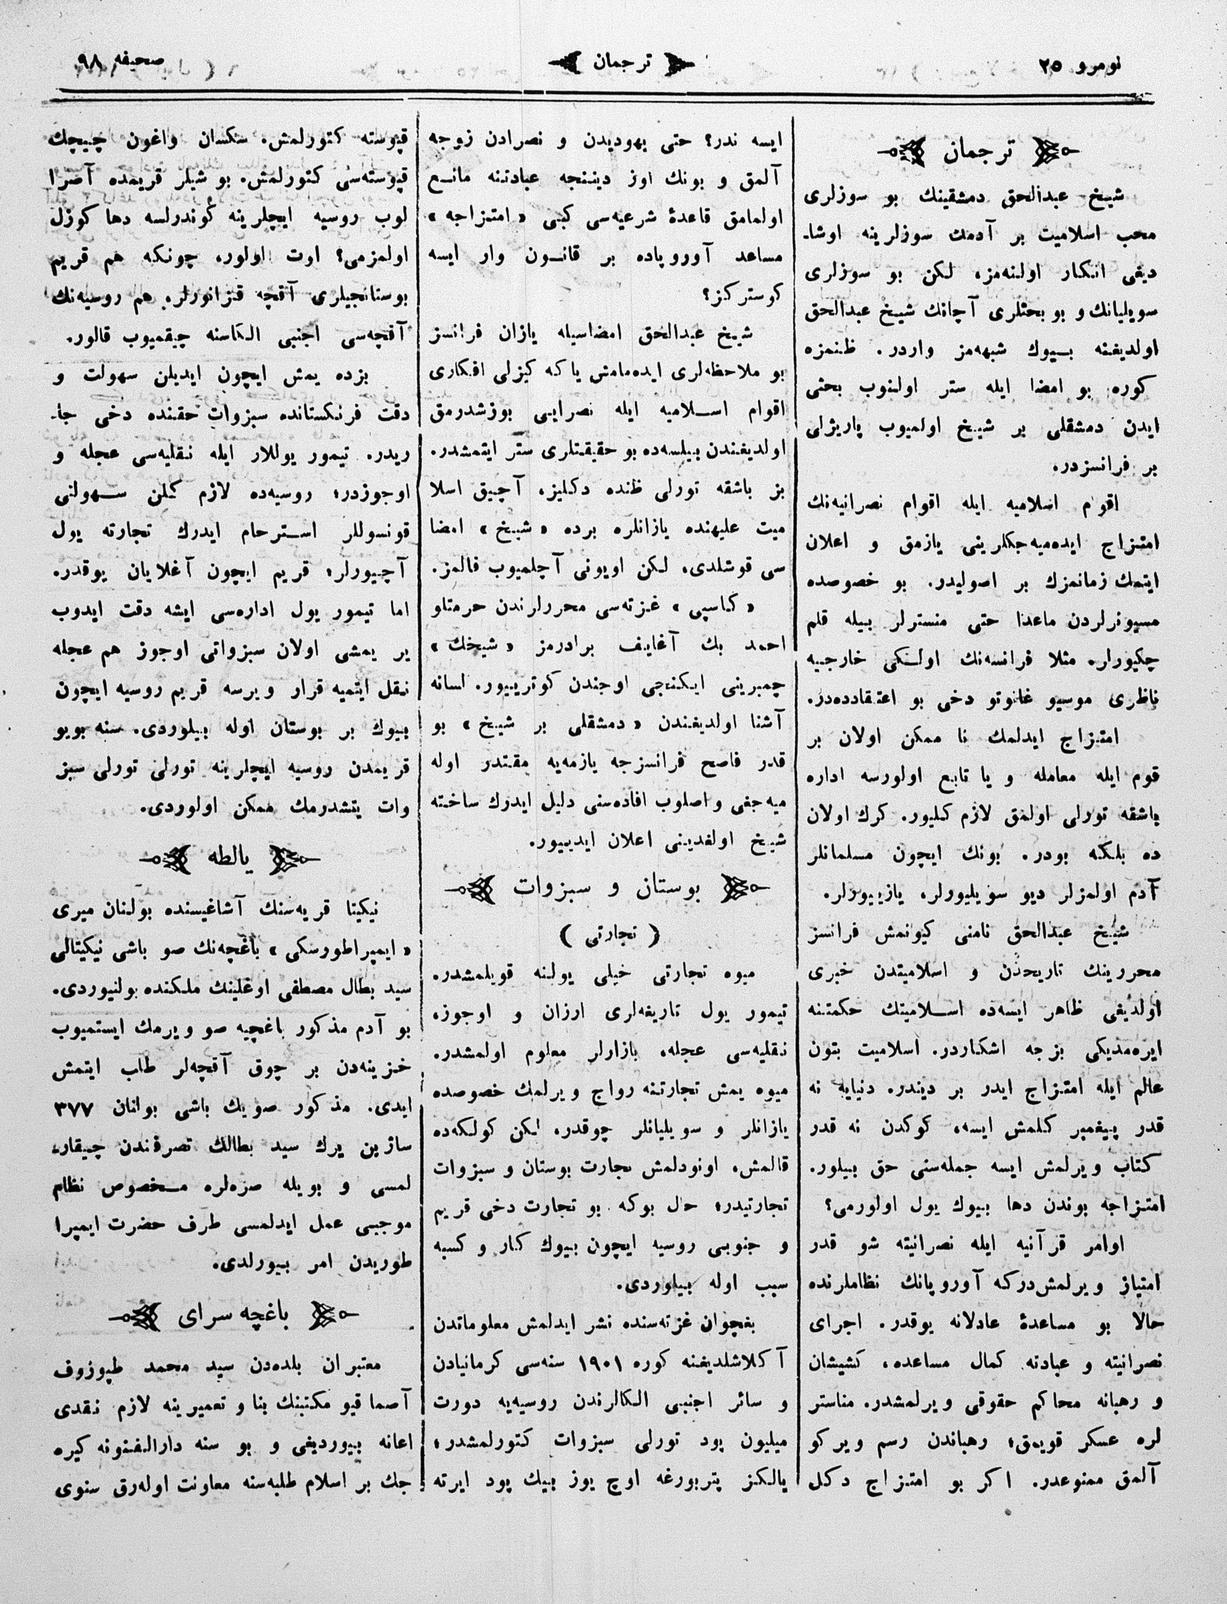 نومرو ٢٥
ترجمان
صحيفه ٩٨
ترجمان
شيخ عبدالحق دمشقينك بو سوزلرى
محب اسلاميت بر آدمك سوزلرينه اوشا-
ديغى انكار اولنه‌مز، لكن بو سوزلرى
سويليانك و بو بحثلرى آچانك شيخ عبدالحق
اولديغنه بيوك شبهه‌مز واردر. ظنمزه
كوره بو امضا ايله ستر اولنوب بحثى
ايدن دمشقلى بر شيخ اولميوب پاريژلى
بر فرانسزدر.
اقوام اسلاميه ايله اقوام نصرانيه‌نك
امتزاج ايده‌ميه‌جكلرينى يازمق و اعلان
ايتمك زمانمزك بر اصوليدر. بو خصوصده
مسيونرلردن ماعدا حتى منسترلر بيله قلم
چكيورلر. مثلا فرانسه‌نك اولكى خارجيه
ناظرى موسيو غانوتو دخى بو اعتقادده‌در.
امتزاج ايدلمك نا ممكن اولان بر
قوم ايله معامله و يا تابع اولورسه اداره
باشقه تورلى اولمق لازم كليور. كرك اولان
ده بلكه بودر. بونك ايچون مسلمانلر
آدم اولمزلر ديو سويليورلر، يازييورلر.
شيخ عبدالحق نامنى كيونمش فرانسز
محررينك تاريخدن و اسلاميتدن خبرى
اولديغى ظاهر ايسه‌ده اسلاميتك حكمتنه
ايره‌مديكى بزجه اشكاردر. اسلاميت بتون
عالم ايله امتزاج ايدر بر ديندر. دنيايه نه
قدر پيغمبر كلمش ايسه، كوكدن نه قدر
كتاب ويرلمش ايسه جمله‌سنى حق بيلور.
امتزاجه بوندن دها بيوك يول اولورمى؟
اوامر قرآنيه ايله نصرانيته شو قدر
امتياز ويرلمش‌دركه آوروپانك نظاملرنده
حالا بو مساعدهٔ عادلانه يوقدر. اجراى
نصرانيته و عبادته كمال مساعده، كشيشان
و رهبانه محاكم حقوقى ويرلمشدر. مناستر
لره عسكر قويمق؛ رهباندن رسم ويركو
آلمق ممنوعدر. اكر بو امتزاج دكل
ايسه ندر؟ حتى يهوديدن و نصرادن زوجه
آلمق و بونك اوز ديننجه عبادتنه مانع
اولمامق قاعدهٔ شرعيه‌سى كبى « امتزاجه »
مساعد آوروپاده بر قانون وار ايسه
كوستركز؟
شيخ عبدالحق امضاسيله يازان فرانسز
بو ملاحظه‌لرى ايده‌مامش ياكه كيزلى افكارى
اقوام اسلاميه ايله نصرايى بوزشدرمق
اولديغندن بيلسه‌ده بو حقيقتلرى ستر ايتمشدر.
بز باشقه تورلى ظنده دكليز. آچيق اسلا
ميت عليهنده يازانلره برده « شيخ » امضا
سى قوشلدى، لكن اويونى آچلميوب قالمز.
« كاسپى » غزته‌سى محررلرندن حرمتلو
احمد بك آغايف برادرمز « شيخك »
چمبرينى ايكنجى اوجندن كوترييور. لسانه
آشنا اولديغندن « دمشقلى بر شيخ » بو
قدر فاصح فرانسزجه يازمه‌يه مقتدر اوله
ميه‌جغى و اصلوب افاده‌سنى دليل ايدرك ساخته
شيخ اولغدينى اعلان ايدييور.
بوستان و سبزوات
( تجارتى )
ميوه تجارتى خيلى يولنه قويلمشدر.
تيمور يول تاريفه‌لرى ارزان و اوجوز،
نقليه‌سى عجله، بازارلر معلوم اولمشدر.
ميوه يمش تجارتنه رواج ويرلمك خصوصده
يازانلر و سويليانلر چوقدر. لكن كولكه‌ده
قالمش، اونودلمش تجارت بوستان و سبزوات
تجارتيدر؛ حال بوكه بو تجارت دخى قريم
و جنوبى روسيه ايچون بيوك كار و كسبه
سبب اوله بيلوردى.
بغچوان غزته‌سنده نشر ايدلمش معلوماتدن
آكلاشلديغنه كوره ١٩٠١ سنه‌سى كرمانيادن
و سائر اجنبى الكالرندن روسيه‌يه دورت
ميليون پود تورلى سبزوات كتورلمشدر؛
يالكز پتربورغه اوچ يوز بيك پود ايرته
قپوسته كتورلمش. سكسان واغون چيچك
قپوسته‌سى كتورلمش. بو شيلر قريمده آصرا
لوب روسيه ايچلرينه كوندرلسه دها كوزل
اولمزمى؟ اوت اولور، چونكه هم قريم
بوستانجيلرى آقچه قزانورلر. هم روسيه‌نك
آقچه‌سى اجنبى الكاسنه چيقميوب قالور.
بزده يمش ايچون ايديلن سهولت و
دقت فرنكستانده سبزوات حقنده دخى جا-
ريدر. تيمور يوللار ايله نقليه‌سى عجله و
اوجوزدر؛ روسيه‌ده لازم كلن سهولتى
قونسوللر استرحام ايدرك تجارته يول
آچيورلر؛ قريم ايچون آغلايان يوقدر.
اما تيمور يول اداره‌سى ايشه دقت ايدوب
ير يمشى اولان سبزواتى اوجوز هم عجله
نقل ايتميه قرار ويرسه قريم روسيه ايچون
بيوك بر بوستان اوله بيلوردى. سنه بويو
قريمدن روسيه ايچلرينه تورلى تورلى سبز
وات يتشدرمك ممكن اولوردى.
يالطه
نيكيتا قريه‌سنك آشاغيسنده بولنان ميرى
« ايمپراطورسكى » باغچه‌نك صو باشى نيكيتالى
سيد بطال مصطفى اوغلينك ملكنده بولنيوردى.
بو آدم مذكور باغچيه صو ويرمك ايستميوب
خزينه‌دن بر چوق آقچه‌لر طلب ايتمش
ايدى. مذكور صويك باشى بولنان ٣٧٧
سازين يرك سيد بطالك تصرفندن چيقار-
لمسى و بويله صره‌لره مخصوص نظام
موجبى عمل ايدلمسى طرف حضرت ايمپرا
طوريدن امر بيورلدى.
باغچه سراى
معتبران بلده‌دن سيد محمد طپوزوف
آصما قيو مكتبنك بنا و تعميرينه لازم نقدى
اعانه بيورديغى و بو سنه دارالفنونه كيره
جك بر اسلام طلبه‌سنه معاونت اوله‌رق سنوى